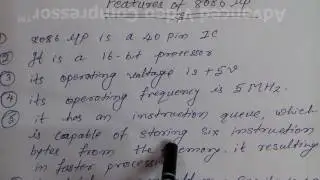 Features of 8086 μp
1) 8086 μp is a 40 pin IC
2) It is a 16-bit processor
3) its operating voltage is +5v
4) its operating frequency is 5 MHz.
5) it has an instruction queue, which
is capable of storing six instruction
bytes from the memory. it resulting
in faster processi